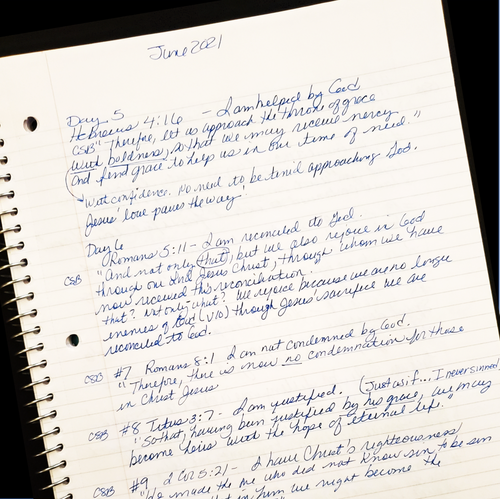 June 2021
Day 5
Hebrews 4:16 - I am helped by God
CSB "Therefore, let us approach the throne of grace
with boldness, so that we may receive mercy
and find grace to help us in our time of need."
With confidence. No need to be timid approaching God.
Jesus' love paves the way.
Day 6
Romans 5:11 - I am reconciled to God.
CSB "And not only that, but we also rejoice in God
through our Lord Jesus Christ, through whom we have
now received this reconciliation.
that? Not only what? We rejoice because we are no longer
enemies of God (v10) through Jesus' sacrifice we are
reconciled to God.
CSB #7 Romans 8:1 - I am not condemned by God.
"Therefore, there is now no condemnation for those
in Christ Jesus
CSB #8 Titus 3:7 - I am justified. (Just as if... I never sinned
"So that, having been justified by his grace, we may
become heirs with the hope of eternal life."
CSB #9 2 Cor 5:21 - I have Christ's righteousness
"He made the one who did not know sin to be sin
that in him we might become the